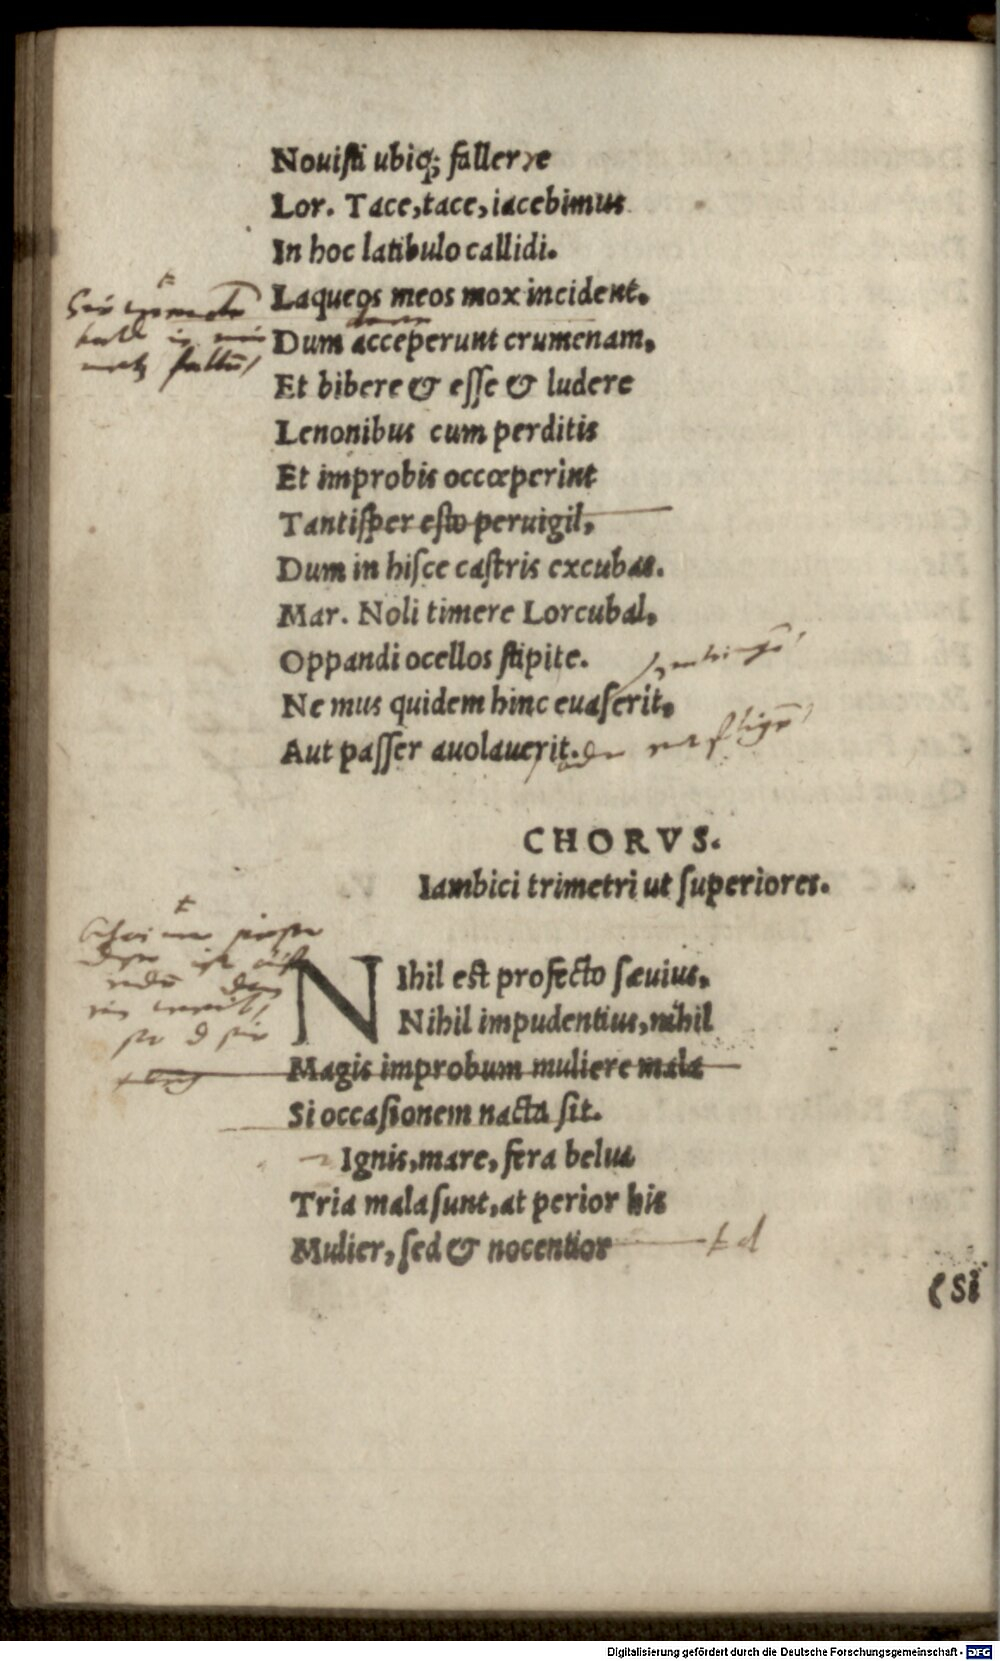 Nouiſti ubiq; fallere
Lor. Tace, tace, iacebimus
In hoc latibulo callidi.
Laqueos meos mox incident.
Dum acceperunt crumenam,
Et bibere & eſſe & ludere
Lenonibus cum perditis
Et improbis occœperint
Tantiſper eſto peruigil,
Dum in hiſce caſtris excubas.
Mar. Noli timere Lorcubal,
Oppandi ocellos ſtipite.
Ne mus quidem hinc euaſerit,
Aut paſſer auolauerit.
CHORVS.
Iambici trimetri ut ſuperiores.
NIhil est profecto ſæuius,
Nihil impudentius, nihil
Magis improbum muliere mala
Si occaſionem nacta ſit.
Ignis, mare, fera belua
Tria mala ſunt, at perior his
Mulier, ſed & nocentior
(Si
Digitalisierung gefördert durch die Deutsche Forschungsgemeinschaft - DFG